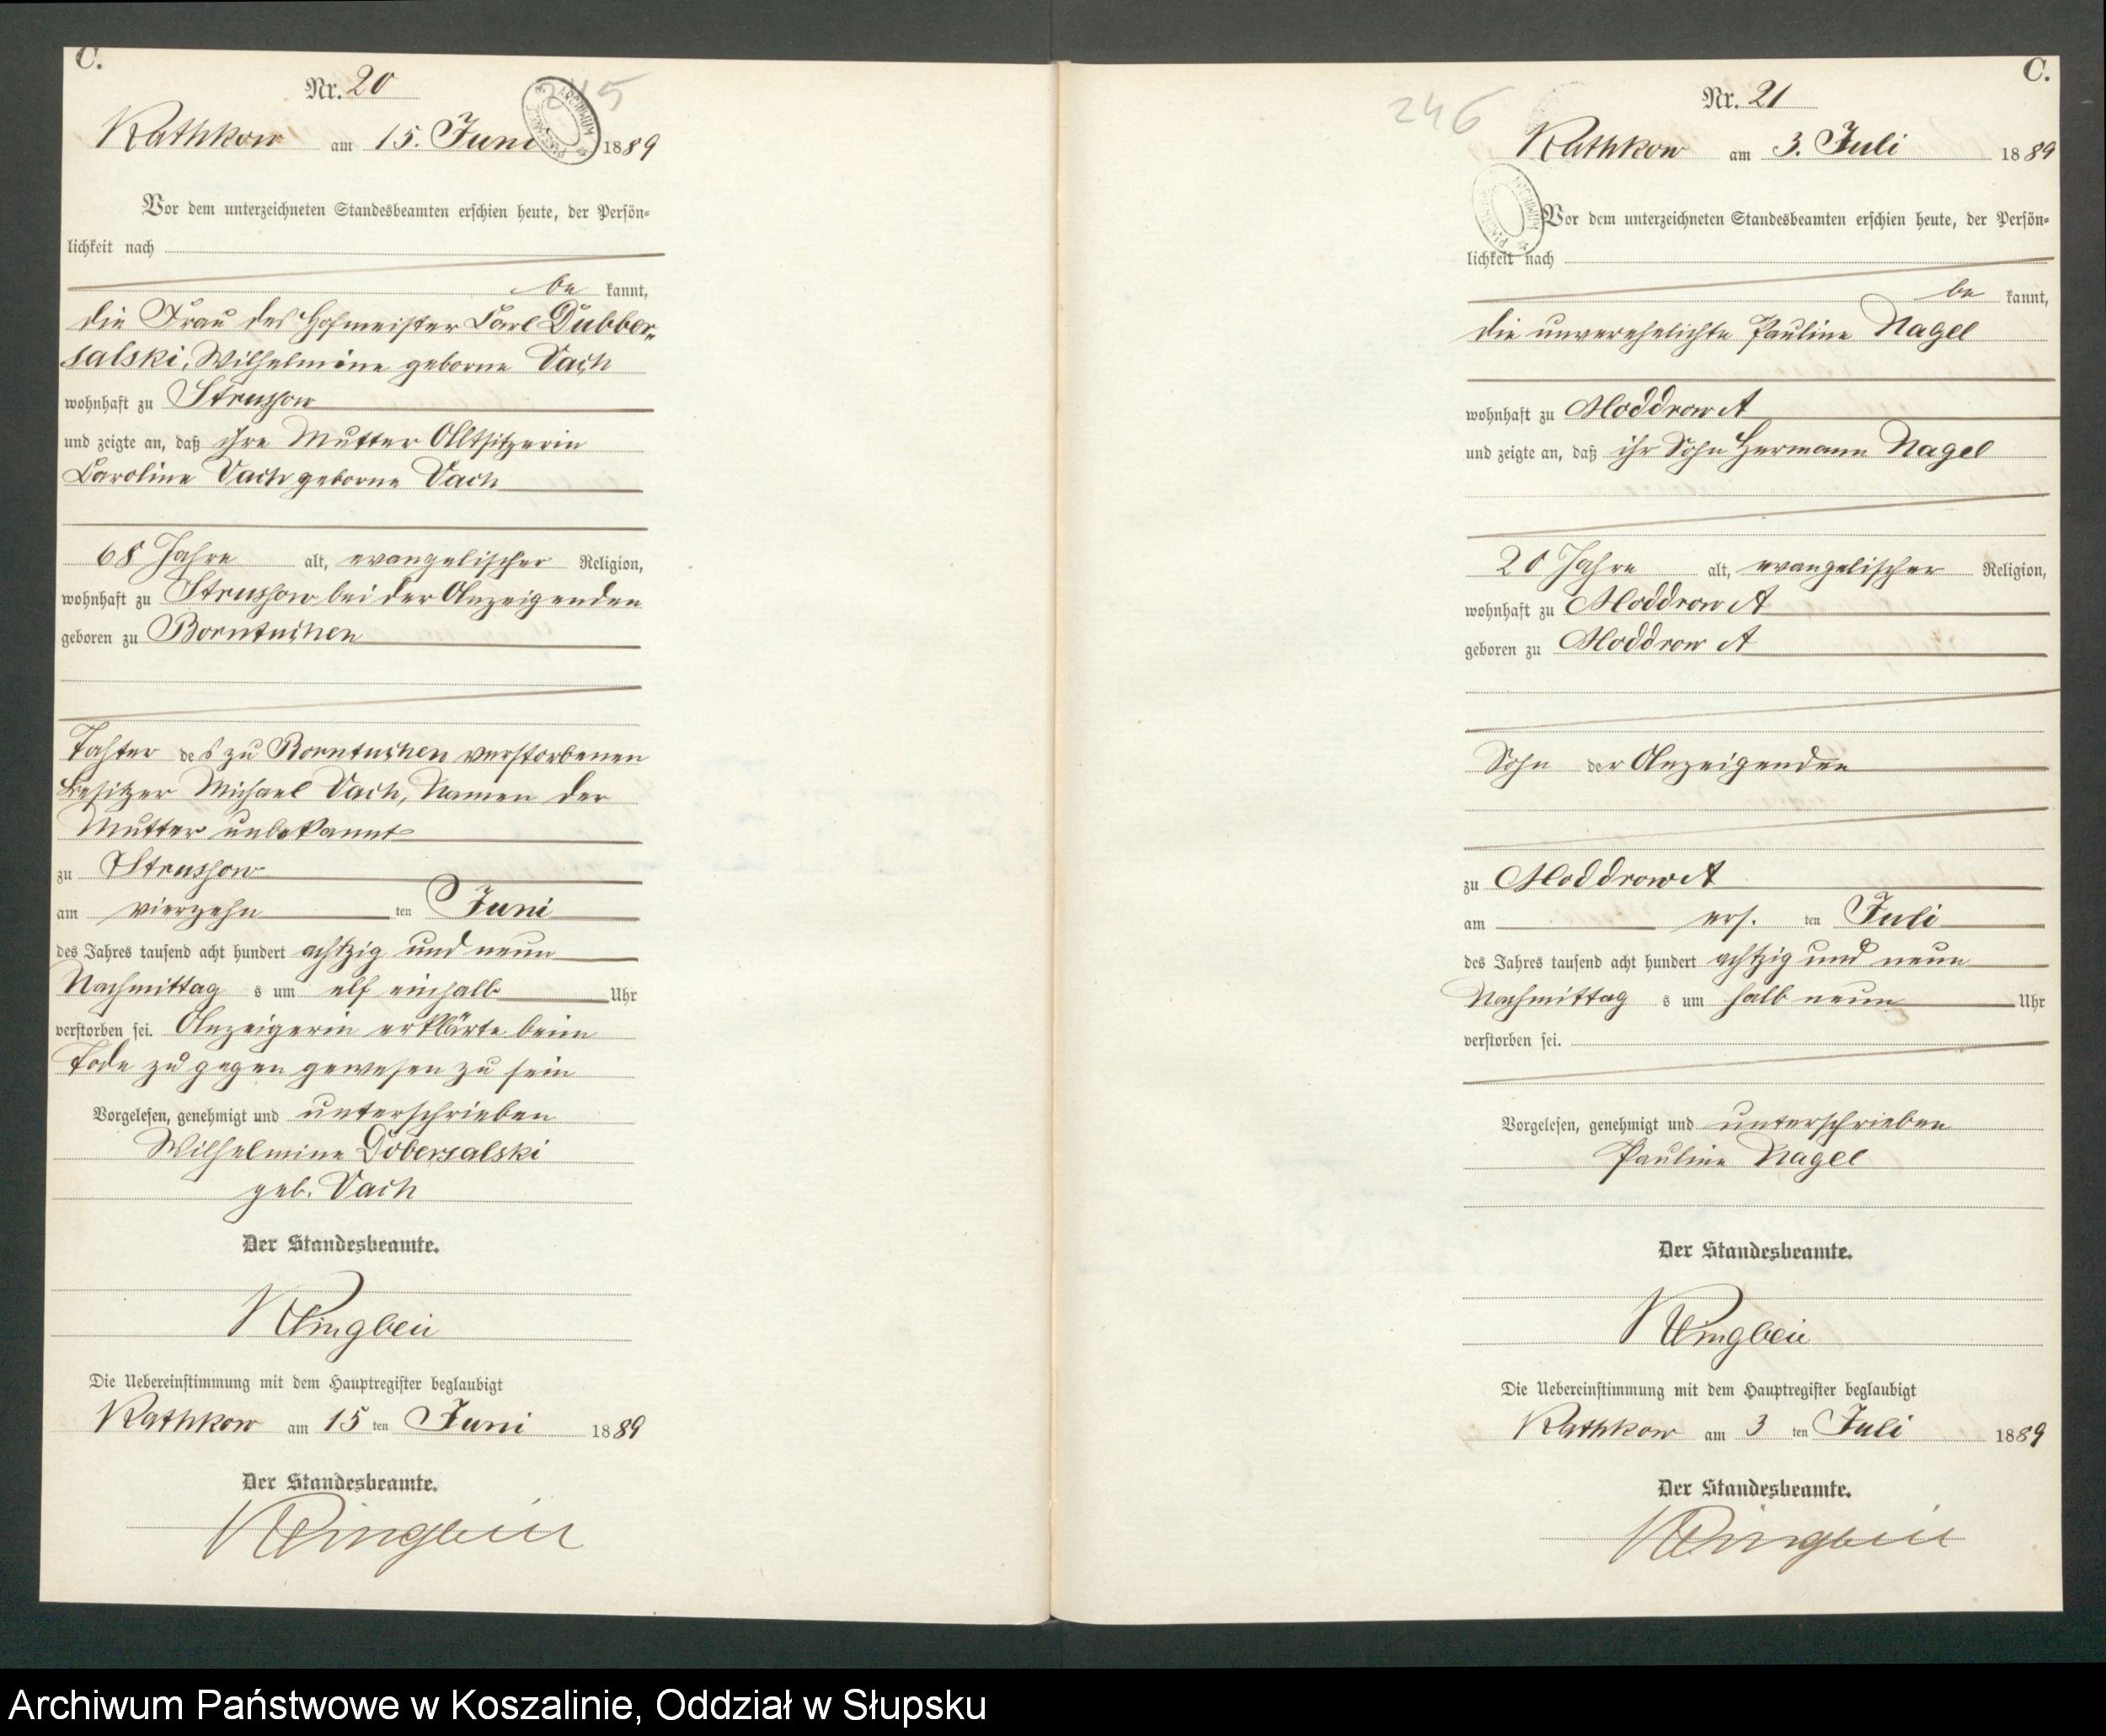 C.
Nr. 20
245
Rathkow am 15. Juni 1889
Vor dem unterzeichneten Standesbeamten erschien heute, der Persön-
lichkeit nach
be kannt,
die Frau des Hofmeister Carl Dubber-
salski, Wilhelmine geborne Vach
wohnhaft zu Strussow
und zeigte an, daß ihre Mutter Altsitzerin
Caroline Vach geborne Vach
68 Jahre alt, evangelischer Religion,
wohnhaft zu Strussow bei der Anzeigenden
geboren zu Borntuchen
Tochter des zu Borntuchen verstorbenen
Besitzer Michael Vach, Namen der
Mutter unbekannt
zu Strussow
am vierzehn ten Juni
des Jahres tausend acht hundert achtzig und neun
Nachmittag s um elf einhalb Uhr
verstorben sei. Anzeigerin erklärte beim
Tode zu gegen gewesen zu sein
Vorgelesen, genehmigt und unterschrieben
Wilhelmine Dobersalski
geb. Vach
Der Standesbeamte.
Klingbeil
Die Uebereinstimmung mit dem Hauptregister beglaubigt
Rathkow am 15 ten Juni 1889
Der Standesbeamte.
Klingbeil
C.
Nr. 21
246
Rathkow am 3. Juli 1889
Vor dem unterzeichneten Standesbeamten erschien heute, der Persön-
lichkeit nach
be kannt,
die unverehelichte Pauline Nagel
wohnhaft zu Moddrow A
und zeigte an, daß ihr Sohn Hermann Nagel
20 Jahre alt, evangelischer Religion,
wohnhaft zu Moddrow A
geboren zu Moddrow A
Sohn der Anzeigenden
zu Moddrow A
am ers. ten Juli
des Jahres tausend acht hundert achtzig und neun
Nachmittag s um halb neun Uhr
verstorben sei.
Vorgelesen, genehmigt und unterschrieben
Pauline Nagel
Der Standesbeamte.
Klingbeil
Die Uebereinstimmung mit dem Hauptregister beglaubigt
Rathkow am 3 ten Juli 1889
Der Standesbeamte.
Klingbeil
Archiwum Państwowe w Koszalinie, Oddział w Słupsku